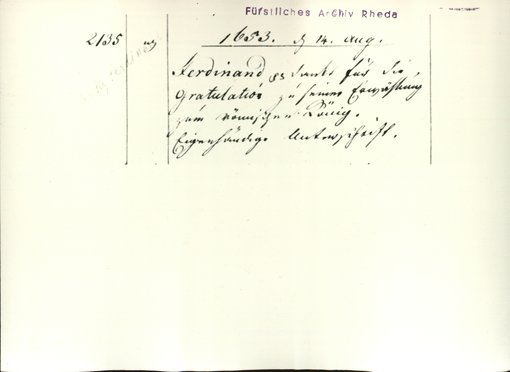 Fürstliches Archiv Rheda
2135
1653. d 14. Aug.
Ferdinand dankt für die
Gratulation zu seiner Erwählung
zum römischen König.
Eigenhändige Unterschrift.